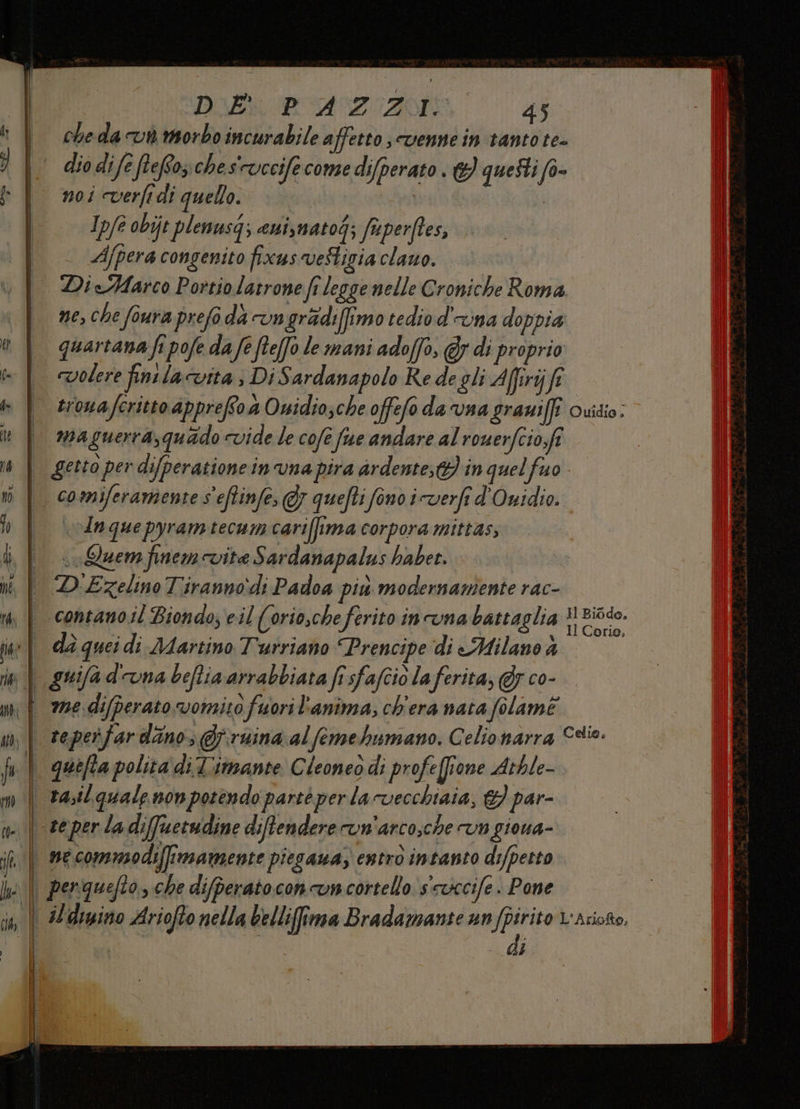 DE' PAZZI. 45
che da vn̄ morbo incurabile affetto, venne in tanto te-
dio di ſe ſteſſo, che s'vcciſe come diſperato. & queſti ſo-
no i verſi di quello.
Ipſe obijt plenusq; æui, natoq; ſuperſtes,
Aſpera congenito fixus veſtigia clauo.
Di Marco Portio latrone ſi legge nelle Croniche Roma
ne, che ſoura preſo da vn grādiſſimo tedio d'vna doppia
quartana ſi poſe da ſe ſteſſo le mani adoſſo, & di proprio
volere finì la vita, Di Sardanapolo Re de gli Aſſirij ſi
troua ſcritto appreſſo à Ouidio, che offeſo da vna grauiſſi Ouidio.
ma guerra, quādo vide le coſe ſue andare al rouerſcio, ſi
gettò per diſperatione in vna pira ardente, & in quel fuo
co miſeramente s'eſtinſe, & queſti ſono i verſi d'Ouidio.
Inque pyram tecum cariſſima corpora mittas,
Quem finem vitæ Sardanapalus habet.
D'Ezelino Tiranno di Padoa più modernamente rac-
contano il Biondo, e il Corio, che ferito in vna battaglia Il Biōdo.
Il Corio,
dà quei di Martino Turriano Prencipe di Milano à
guiſa d'vna beſtia arrabbiata ſi sfaſciò la ferita, & co-
me diſperato vomitò fuori l'anima, ch'era nata ſolamē
te per far dāno, & ruina al ſeme humano. Celio narra Celio.
queſta polita di Timante Cleoneò di profeſſione Athle-
ta, il quale non potendo parte per la vecchiaia, & par-
te per la diſſuetudine diſtendere vn'arco, che vn gioua-
ne commodiſſimamente piegaua, entrò in tanto diſpetto
per queſto, che diſperato con vn cortello s'vcciſe. Pone
il diuino Arioſto nella belliſſima Bradamante un ſpirito L'Arioſto,
di